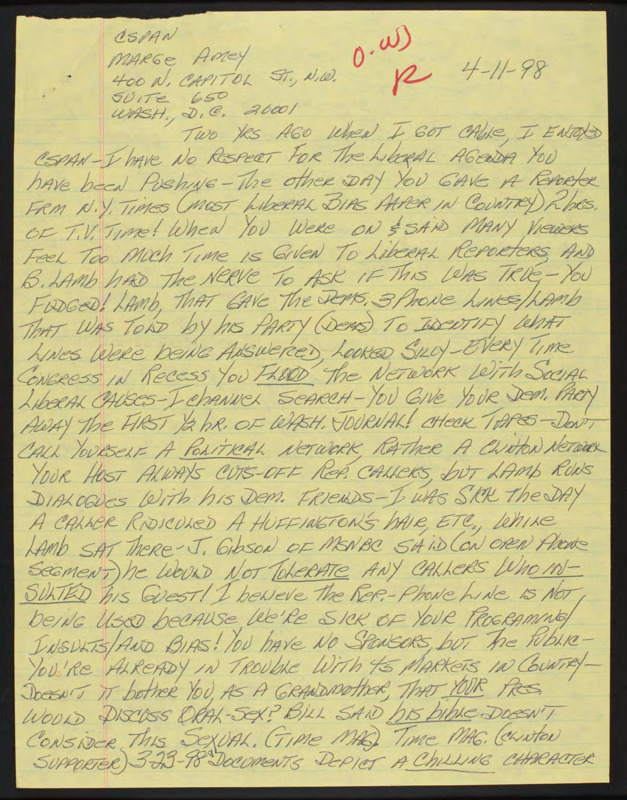 CSPAN
MARGE AMEY
400 N. CAPITOL ST., N.W.
SUITE 650
WASH., D.C. 20001
O.W)
R
4-11-98
TWO YRS AGO WHEN I GOT CABLE, I ENJOYED
CSPAN-I HAVE NO RESPECT FOR THE LIBERAL AGENDA YOU
HAVE BEEN PUSHING-THE OTHER DAY YOU GAVE A REPORTER
FRM N.Y. TIMES (MOST LIBERAL BIAS PAPER IN COUNTRY) 2 HRS.
OF T.V. TIME! WHEN YOU WERE ON & SAID MANY VIEWERS
FEEL TOO MUCH TIME IS GIVEN TO LIBERAL REPORTERS, AND
B. LAMB HAD THE NERVE TO ASK IF THIS WAS TRUE,-YOU
FUDGED! LAMB, THAT GAVE THE DEMS. 3 PHONE LINES/LAMB
THAT WAS TOLD BY HIS PARTY (DEMS) TO IDENTIFY WHAT
LINES WERE BEING ANSWERED, LOOKED SILLY-EVERY TIME
CONGRESS IN RECESS YOU FLOOD, THE NETWORK WITH SOCIAL
LIBERAL CAUSES-I CHANNEL SEARCH-YOU GIVE YOUR DEM. PARTY
AWAY THE FIRST ½ HR. OF WASH. JOURNAL! CHECK TAPES-DON'T
CALL YOURSELF A POLITICAL NETWORK, RATHER A CLINTON NETWORK
YOUR HOST ALWAYS CUTS-OFF REP. CALLERS, BUT LAMB RUNS
DIALOGUES WITH HIS DEM. FRIENDS-I WAS SICK THE DAY
A CALLER RIDICULED A HUFFINGTON'S HAIR, ETC., WHILE
LAMB SAT THERE-J. GIBSON OF MSNBC SAID (ON OPEN PHONE
SEGMENT) HE WOULD NOT TOLERATE ANY CALLERS WHO IN-
SULTED HIS GUEST! I BELIEVE THE REP.-PHONE LINE IS NOT
BEING USED BECAUSE WE'RE SICK OF YOUR PROGRAMING/
INSULTS/AND BIAS! YOU HAVE NO SPONSORS, BUT THE PUBLIC-
YOU'RE ALREADY IN TROUBLE WITH 45 MARKETS IN COUNTRY-
DOESN'T IT BOTHER YOU, AS A GRANDMOTHER, THAT YOUR PRES.
WOULD DISCUSS ORAL-SEX? BILL SAID HIS BIBLE DOESN'T
CONSIDER THIS SEXUAL. (TIME MAG). TIME MAG. (CLINTON
SUPPORTER) 3-23-98 "DOCUMENTS DEPICT A CHILLING CHARACTER